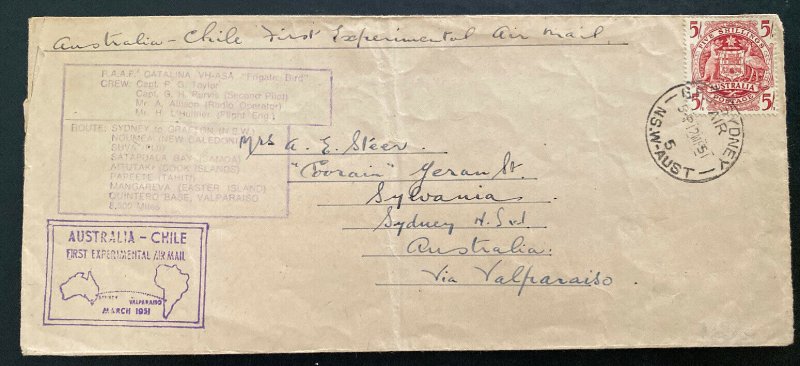 Australia - Chile First Experimental Air Mail.
R.A.A.F. CATALINA VH-ASA "Frigate Bird"
CREW: Capt. P. G. Taylor
Capt. G. H. Purvis (Second Pilot)
Mr. A. Allison (Radio Operator)
Mr. H. L'Huillier (Flight Eng.)
ROUTE: SYDNEY to GRAFTON (N.S.W.)
NOUMEA (NEW CALEDONIA)
SUVA (FIJI)
SATAPUALA BAY (SAMOA)
AITUTAKI (COOK ISLANDS)
PAPEETE (TAHITI)
MANGAREVA (EASTER ISLAND)
QUINTERO BASE, VALPARAISO
8,500 Miles
AUSTRALIA - CHILE
FIRST EXPERIMENTAL AIR MAIL
SYDNEY
VALPARAISO
MARCH 1951
Mrs A. E. Steer.
"Toorain" Jeran St.
Sylvania
Sydney N.S.W
Australia.
Via Valparaiso.
5/ FIVE SHILLINGS 5/
AUSTRALIA
5/ POSTAGE 5/
SYDNEY
AIR
5
N.S.W-AUST